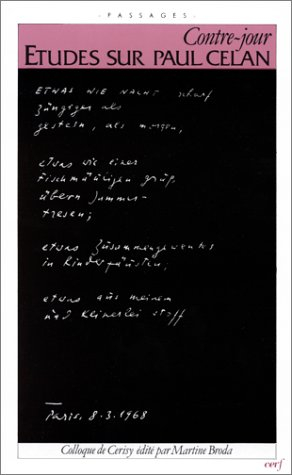 - PASSAGES -
Contre-jour
ETUDES SUR PAUL CELAN
ETWAS WIE NACHT scharf
züngiger als
gestern, als morgen,
etwas wie einer
Fischmäuligen gruß
übern Jammer-
tresen;
etwas Zusammengewehtes
in Kinderfäusten,
etwas aus meinem
und keinerlei stoff
Paris, 8.3.1968
Colloque de Cerisy édité par Martine Broda
cerf